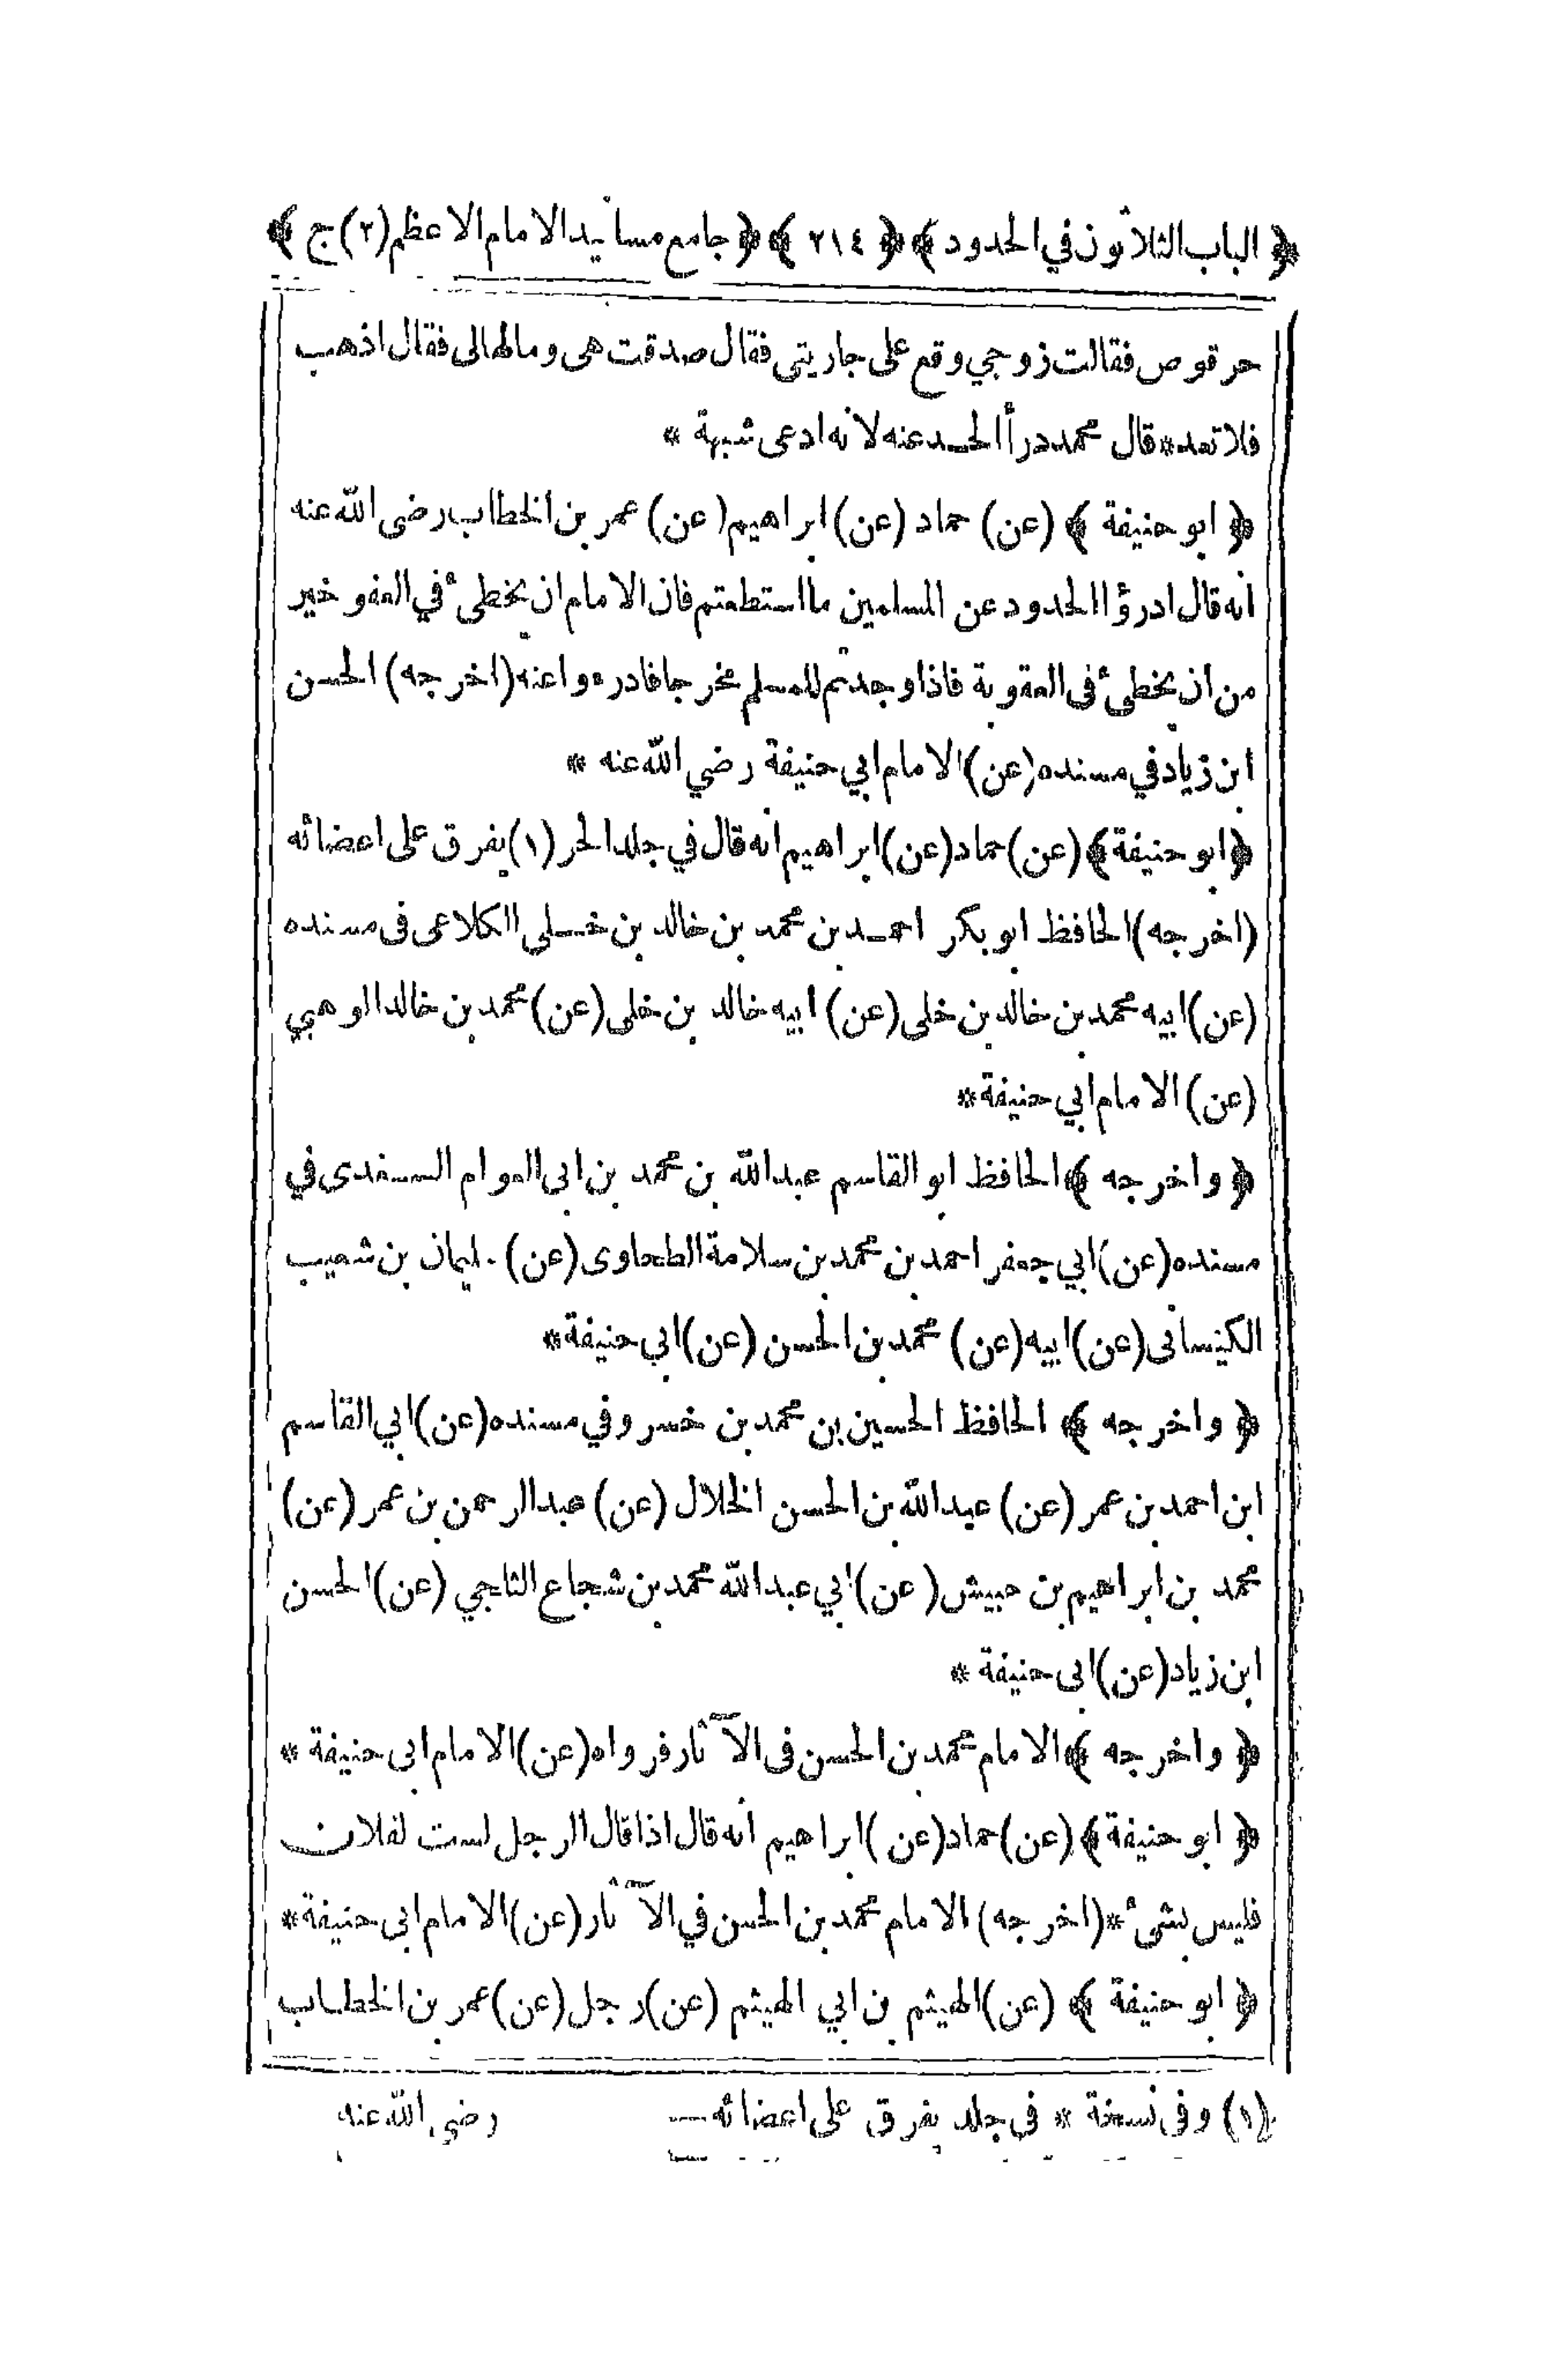 ﴿ الباب الثلاثون في الحدود ﴾ ﴿ ٢١٤ ﴾ ﴿ جامع مسانيد الامام الاعظم (٢) ج ﴾
حرقوص فقالت زوجي وقع على جاريتى فقال صدقت هى ومالها لى فقال اذهب
فلا تعد * قال محمد درأ الحد عنه لانه ادعى شبهة *
﴿ ابو حنيفة ﴾ (عن) حماد (عن) ابراهيم (عن) عمر بن الخطاب رضى الله عنه
انه قال ادرؤا الحدود عن المسلمين ما استطعتم فان الامام ان يخطئ في العفو خير
من ان يخطئ فى العقوبة فاذا وجدتم للمسلم مخرجا فادرءوا عنه (اخرجه) الحسن
ابن زياد في مسنده (عن) الامام ابي حنيفة رضي الله عنه *
﴿ ابو حنيفة ﴾ (عن) حماد (عن) ابراهيم انه قال في جلد الحر (١) يفرق على اعضائه
(اخرجه) الحافظ ابو بكر احمد بن محمد بن خالد بن خلى الكلاعى فى مسنده
(عن) ابيه محمد بن خالد بن خلى (عن) ابيه خالد بن خلى (عن) محمد بن خالد الوهبي
(عن) الامام ابي حنيفة *
﴿ واخرجه ﴾ الحافظ ابو القاسم عبد الله بن محمد بن ابى العوام السغدى في
مسنده (عن) ابي جعفر احمد بن محمد بن سلامة الطحاوى (عن) سليمان بن شعيب
الكيسانى (عن) ابيه (عن) محمد بن الحسن (عن) ابي حنيفة *
﴿ واخرجه ﴾ الحافظ الحسين بن محمد بن خسرو في مسنده (عن) ابي القاسم
ابن احمد بن عمر (عن) عبد الله بن الحسن الخلال (عن) عبد الرحمن بن عمر (عن)
محمد بن ابراهيم بن حبيش (عن) ابي عبد الله محمد بن شجاع الثلجي (عن) الحسن
ابن زياد (عن) ابى حنيفة *
﴿ واخرجه ﴾ الامام محمد بن الحسن فى الآثار فرواه (عن) الامام ابى حنيفة *
﴿ ابو حنيفة ﴾ (عن) حماد (عن) ابراهيم انه قال اذا قال الرجل لست لفلان
فليس بشئ * (اخرجه) الامام محمد بن الحسن في الآثار (عن) الامام ابى حنيفة *
﴿ ابو حنيفة ﴾ (عن) الهيثم بن ابي الهيثم (عن) رجل (عن) عمر بن الخطاب
(١) وفى نسخة * فى جلد يفرق على اعضائه — رضى الله عنه